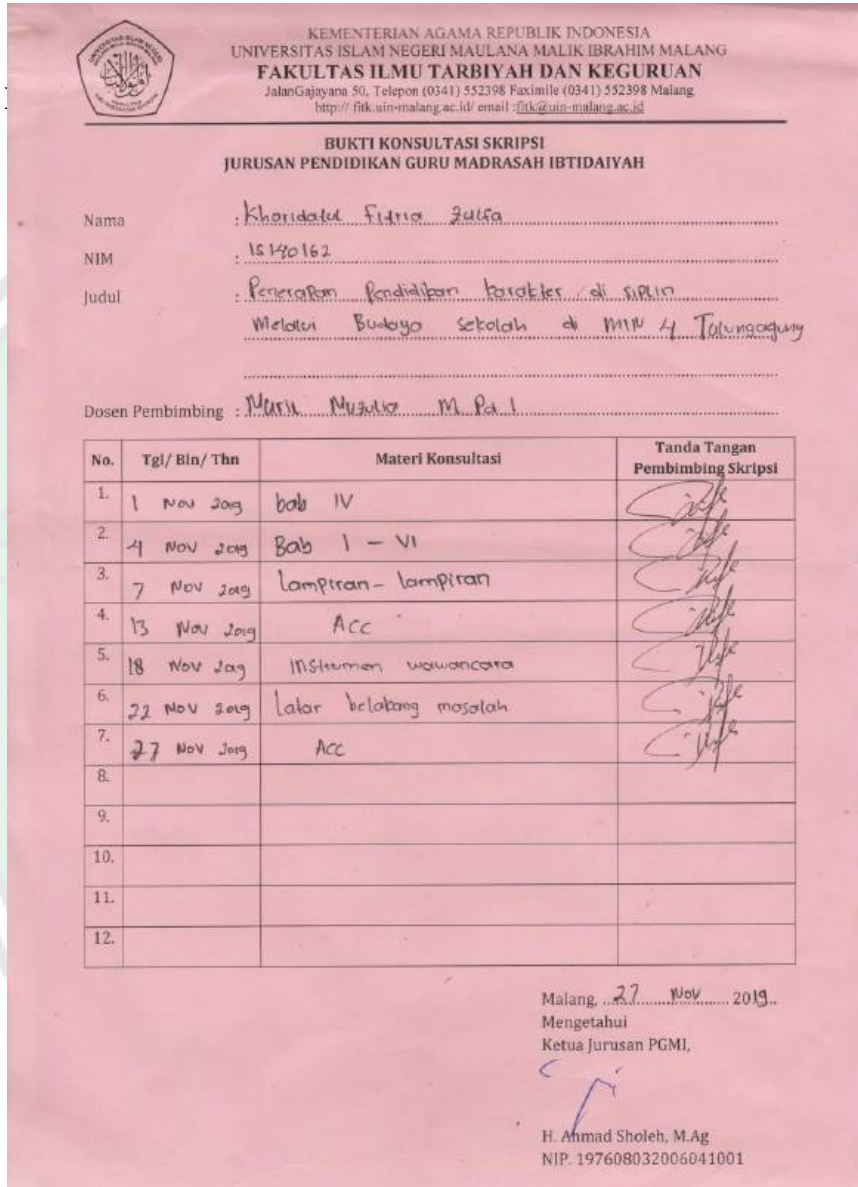 KEMENTERIAN AGAMA REPUBLIK INDONESIA
UNIVERSITAS ISLAM NEGERI MAULANA MALIK IBRAHIM MALANG
FAKULTAS ILMU TARBIYAH DAN KEGURUAN
JalanGajayana 50, Telepon (0341) 552398 Faximile (0341) 552398 Malang
http:// fitk.uin-malang.ac.id/ email :fitk@uin-malang.ac.id
BUKTI KONSULTASI SKRIPSI
JURUSAN PENDIDIKAN GURU MADRASAH IBTIDAIYAH
Nama : Khoridatul Fitria Zulfa
NIM : 15140162
Judul : Penerapan Pendidikan karakter di siplin
Melalui Budaya sekolah di MIN 4 Tulungagung
Dosen Pembimbing : Nuril Nuzulia M. Pd. I
No. Tgl/ Bln/ Thn Materi Konsultasi Tanda Tangan Pembimbing Skripsi
1. 1 Nov 2019 bab IV
2. 4 Nov 2019 Bab I - VI
3. 7 Nov 2019 lampiran - lampiran
4. 13 Nov 2019 Acc
5. 18 Nov 2019 instrumen wawancara
6. 22 Nov 2019 Latar belakang masalah
7. 27 Nov 2019 Acc
8.
9.
10.
11.
12.
Malang, 27 Nov 2019
Mengetahui
Ketua Jurusan PGMI,
H. Ahmad Sholeh, M.Ag
NIP. 197608032006041001